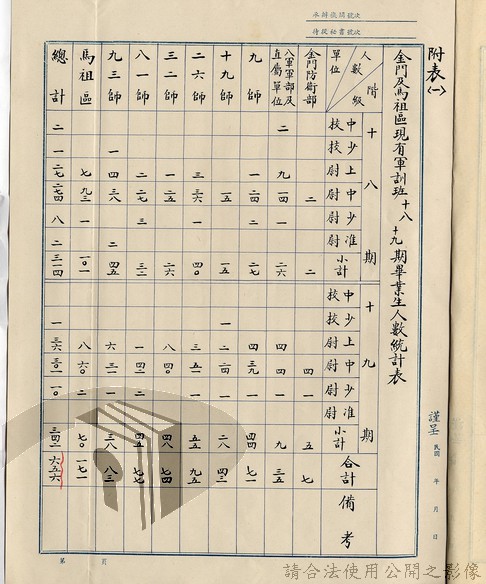 承辦機關號次
待從秘書號次
附表(一)
金門及馬祖區現有軍訓班十八十九期畢業生人數統計表
人數 階級 單位 十八期 中校 少校 上尉 中尉 少尉 准尉 小計 十九期 中校 少校 上尉 中尉 少尉 准尉 小計 合計 備考
金門防衛部 二 二 四 一 五 七
八軍軍部及直屬單位 二 九 一四 一 二六 四 四 一 九 三五
九師 一 二四 二 二七 四 三九 一 四四 七一
十九師 一五 一五 一 二 二四 一 二八 四三
二六師 三 三六 一 四〇 三 五一 一 五五 九五
三二師 一 二五 二六 八 四〇 四八 七四
八一師 二 二七 三 三二 一 四二 二 四五 七七
九三師 一 四 三八 二 四五 六 三一 一 三八 八三
馬祖區 七 九三 一 一〇一 八 六〇 二 七〇 一七一
總計 二 一 二七 二七四 八 二 三一四 一 三六 一〇 三四二 六五六
謹呈 民國 年 月 日
第 頁
請合法使用公開之影像